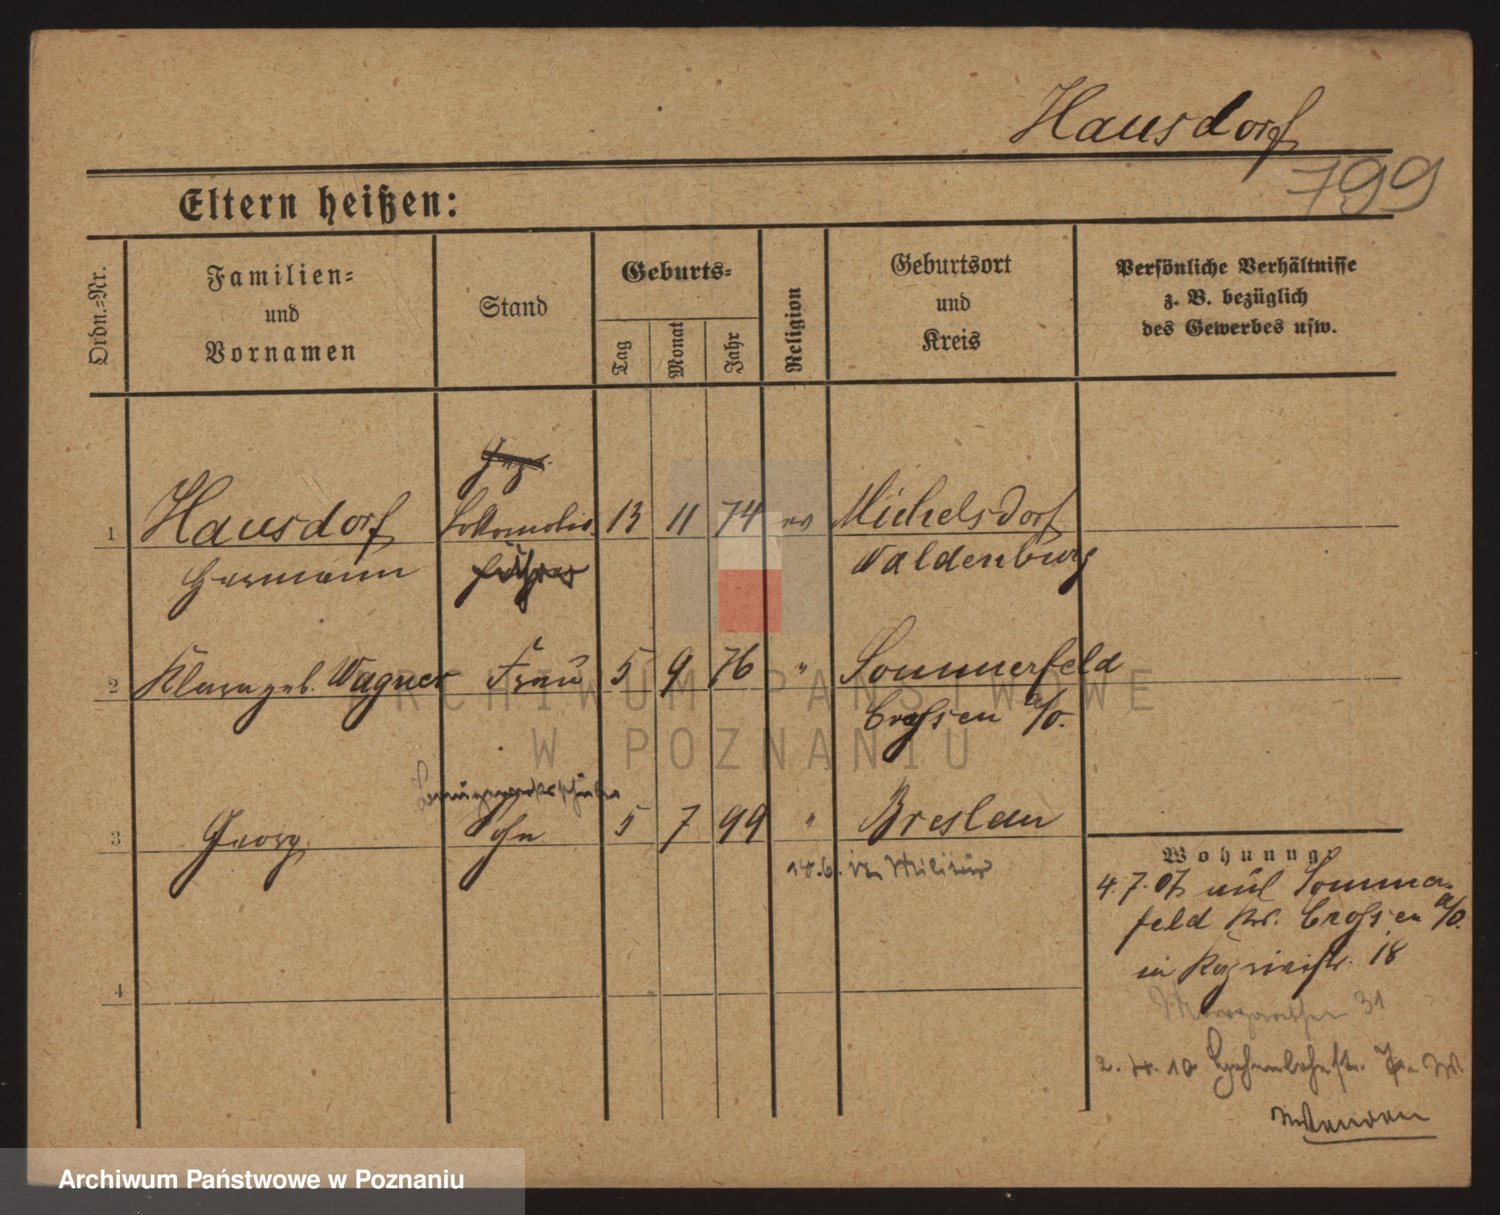 Hausdorf
799
Eltern heißen:
Ordn.=Nr.
Familien=
und
Vornamen
Stand
Geburts=
Tag
Monat
Jahr
Religion
Geburtsort
und
Kreis
Persönliche Verhältnisse
z. B. bezüglich
des Gewerbes usw.
1 Hausdorf Lokomotiv 13 11 74 ev Michelsdorf
Hermann führer Waldenburg
2 Klara geb. Wagner Frau 5 9 76 " Sommerfeld
Crossen a/O.
3 Georg Sohn 5 7 99 " Breslau
Militär
Wohnung:
4. 7. 07 Sommer
feld Kr. Crossen a/O.
in 18
4
31
2. 10
ARCHIWUM PAŃSTWOWE
W POZNANIU
Archiwum Państwowe w Poznaniu